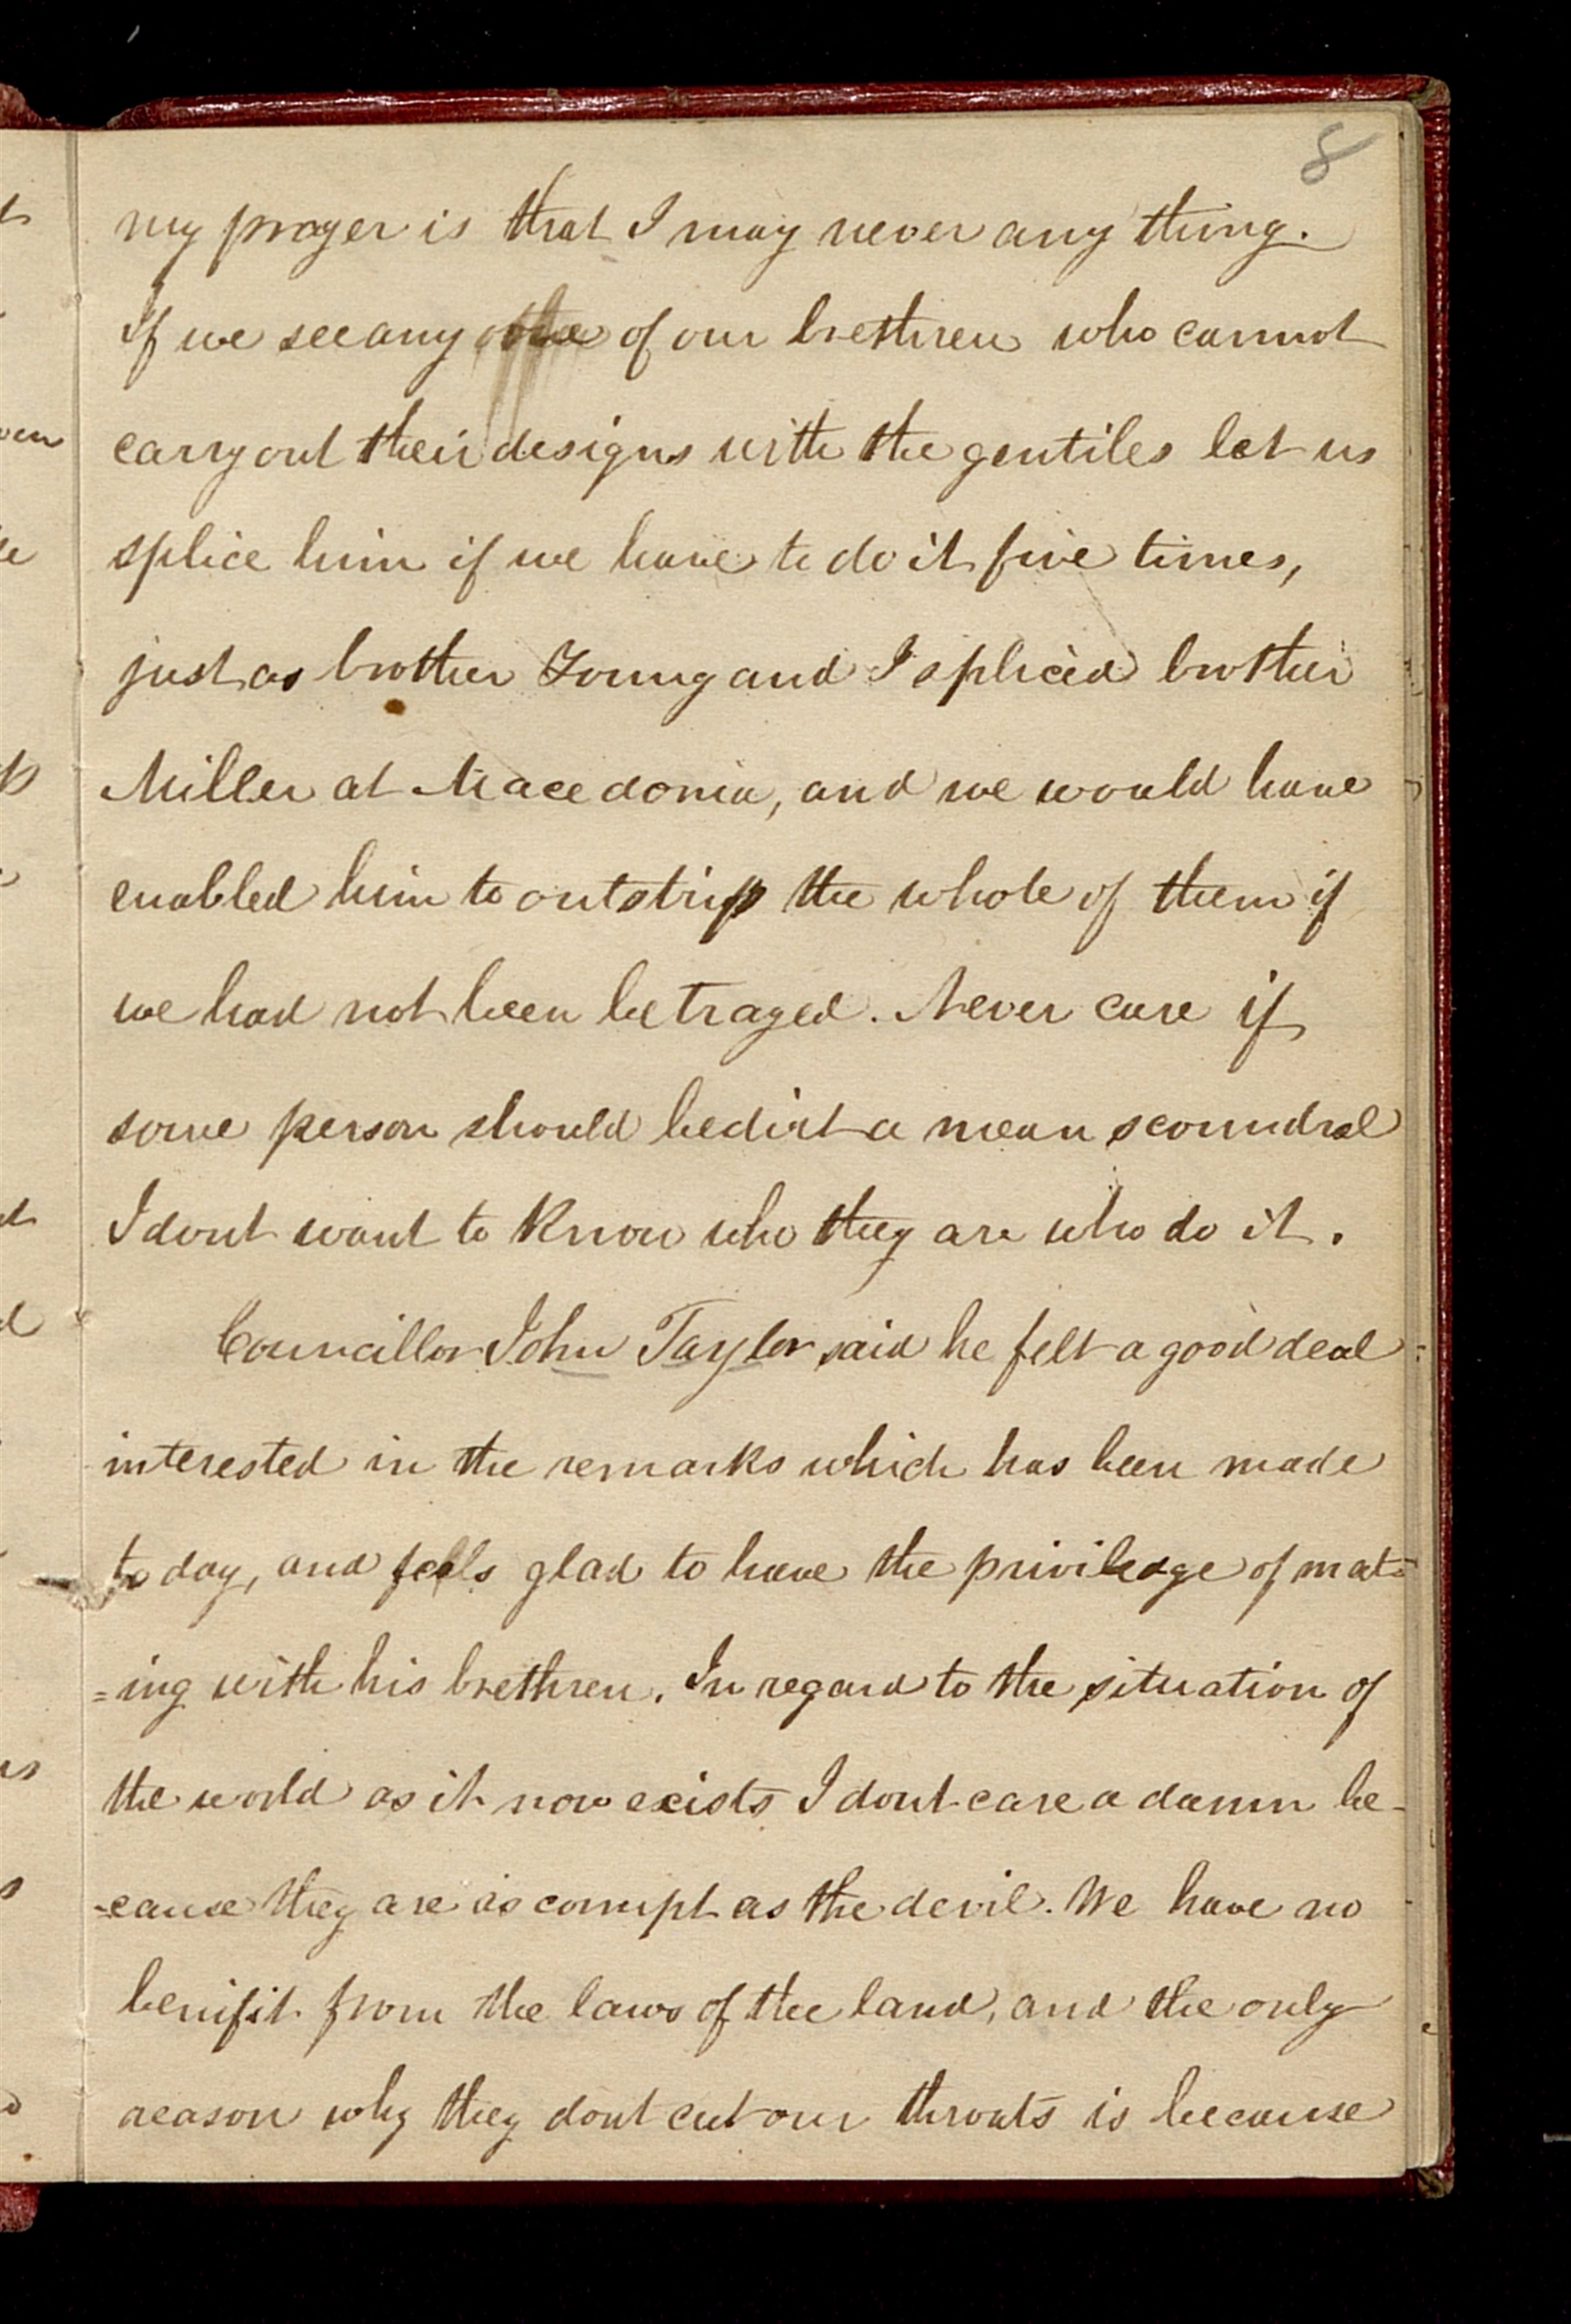 8
my prayer is that I may never any thing.
If we see any of our brethren who cannot
carry out their designs with the gentiles let us
splice him if we have to do it five times,
just as brother Young and I spliced brother
Miller at Macedonia, and we would have
enabled him to outstrip the whole of them if
we had not been betrayed. Never care if
some person should bedirt a mean scoundral
I dont want to know who they are who do it.
Councillor John Taylor said he felt a good deal
interested in the remarks which has been made
to day, and feels glad to have the priviledge of mat=
=ing with his brethren. In regard to the situation of
the world as it now exists I dont care a damn be-
-cause they are as corrupt as the devil. We have no
benifit from the laws of the land, and the only
reason why they dont cut our throats is because